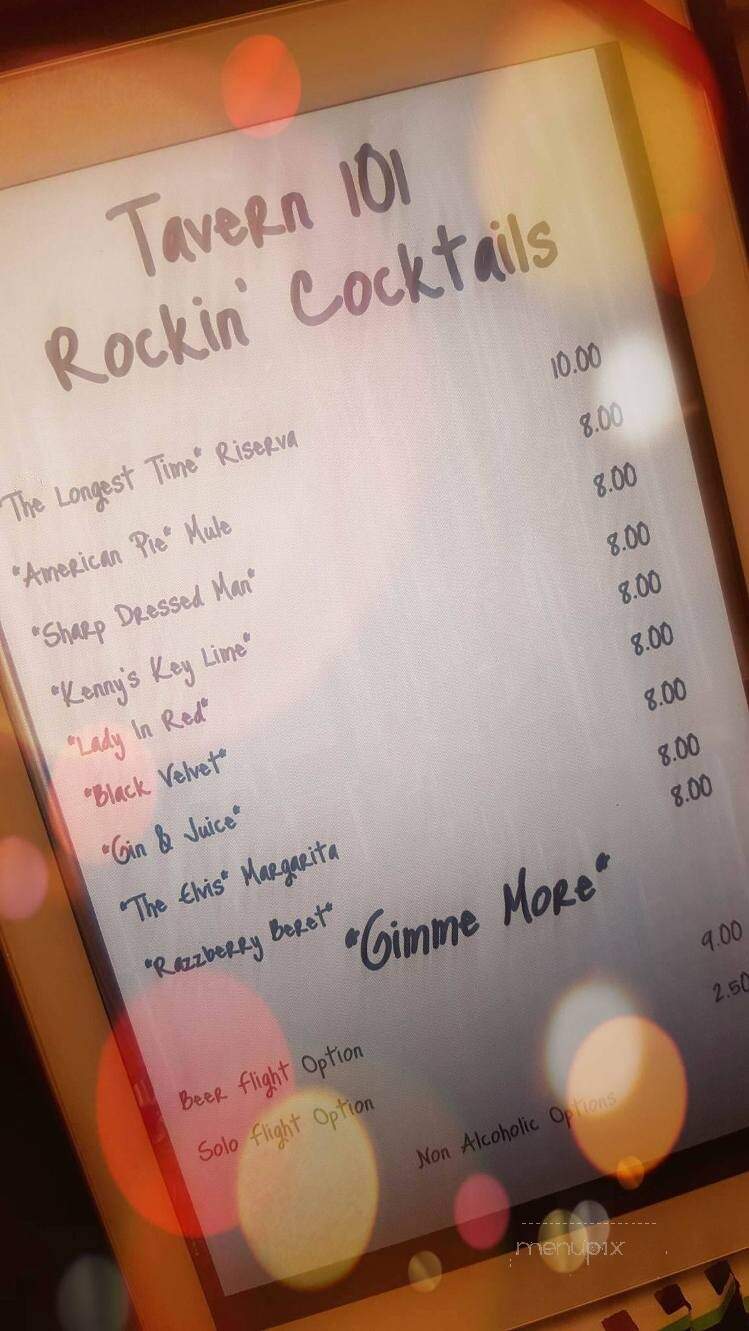 Tavern 101
Rockin' Cocktails
"The Longest Time" Riserva 10.00
"American Pie" Mule 8.00
"Sharp Dressed Man" 8.00
"Kenny's Key Lime" 8.00
"Lady In Red" 8.00
"Black Velvet" 8.00
"Gin & Juice" 8.00
"The Elvis" Margarita 8.00
"Razzberry Beret" 8.00
"Gimme More"
Beer flight Option 9.00
Solo flight Option 2.50
Non Alcoholic Options
menupix